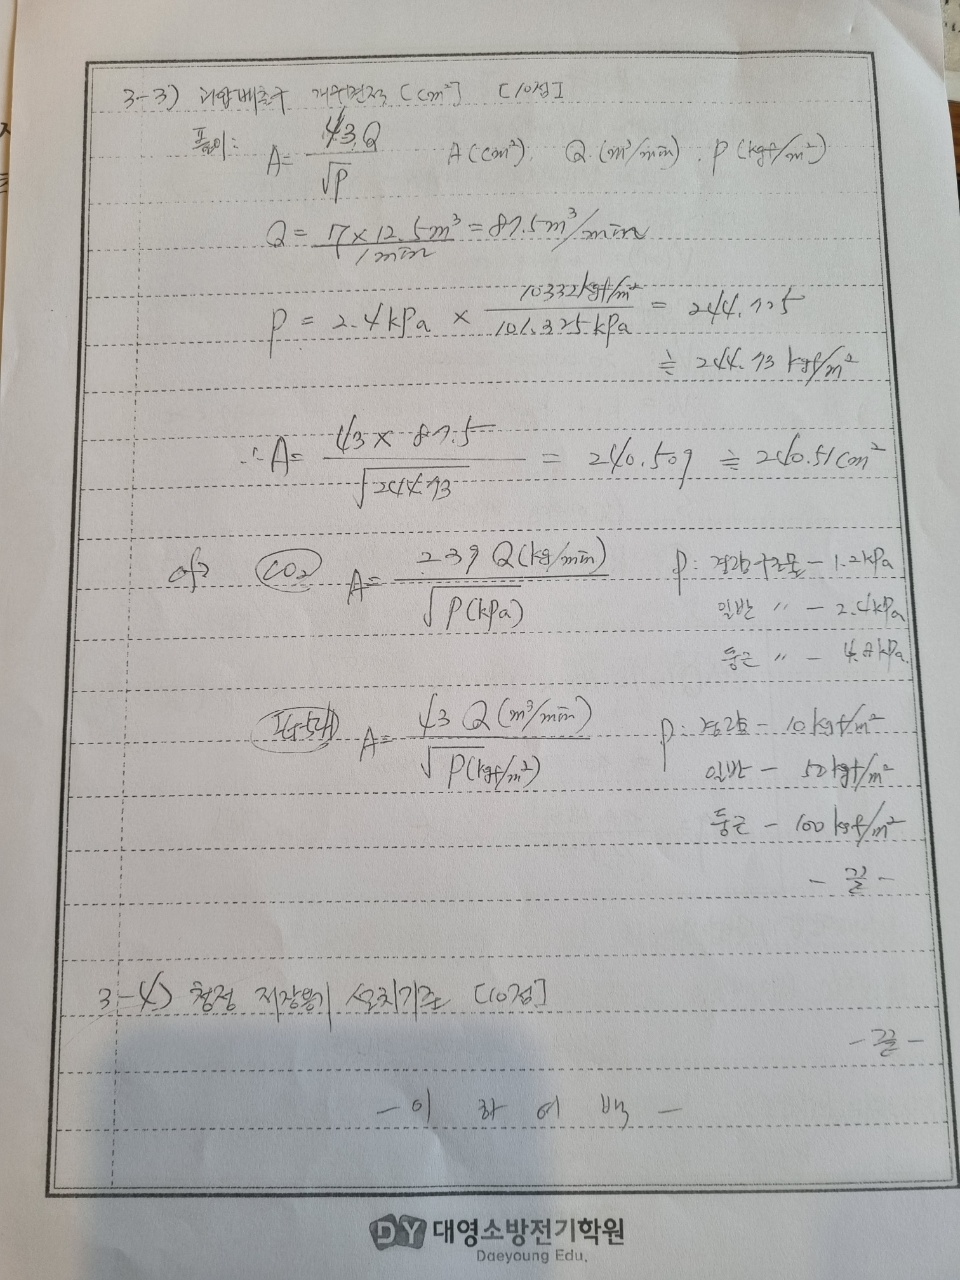 3-3) 과압배출구 개구면적 [cm²] [10점]
풀이: A = 43Q / √P A(cm²), Q(m³/min), P(kgf/m²)
Q = 7 × 12.5m³ / 1min = 87.5m³/min
P = 2.4kPa × 10332kgf/m² / 101.325kPa = 244.725
≒ 244.73 kgf/m²
∴ A = 43 × 87.5 / √244.73 = 240.509 ≒ 240.51cm²
CO₂ A = 239 Q(kg/min) / √P(kPa) P: 경량구조물 - 1.2kPa
일반 〃 - 2.4kPa
둥근 〃 - 4.8kPa.
A = 43 Q(m³/min) / √P(kgf/m²) P: 경량 - 10kgf/m²
일반 - 50kgf/m²
둥근 - 100kgf/m²
- 끝 -
3-4) 청정 저장용기 설치기준 [10점]
- 끝 -
- 이 하 여 백 -
DY 대영소방전기학원
Daeyoung Edu.